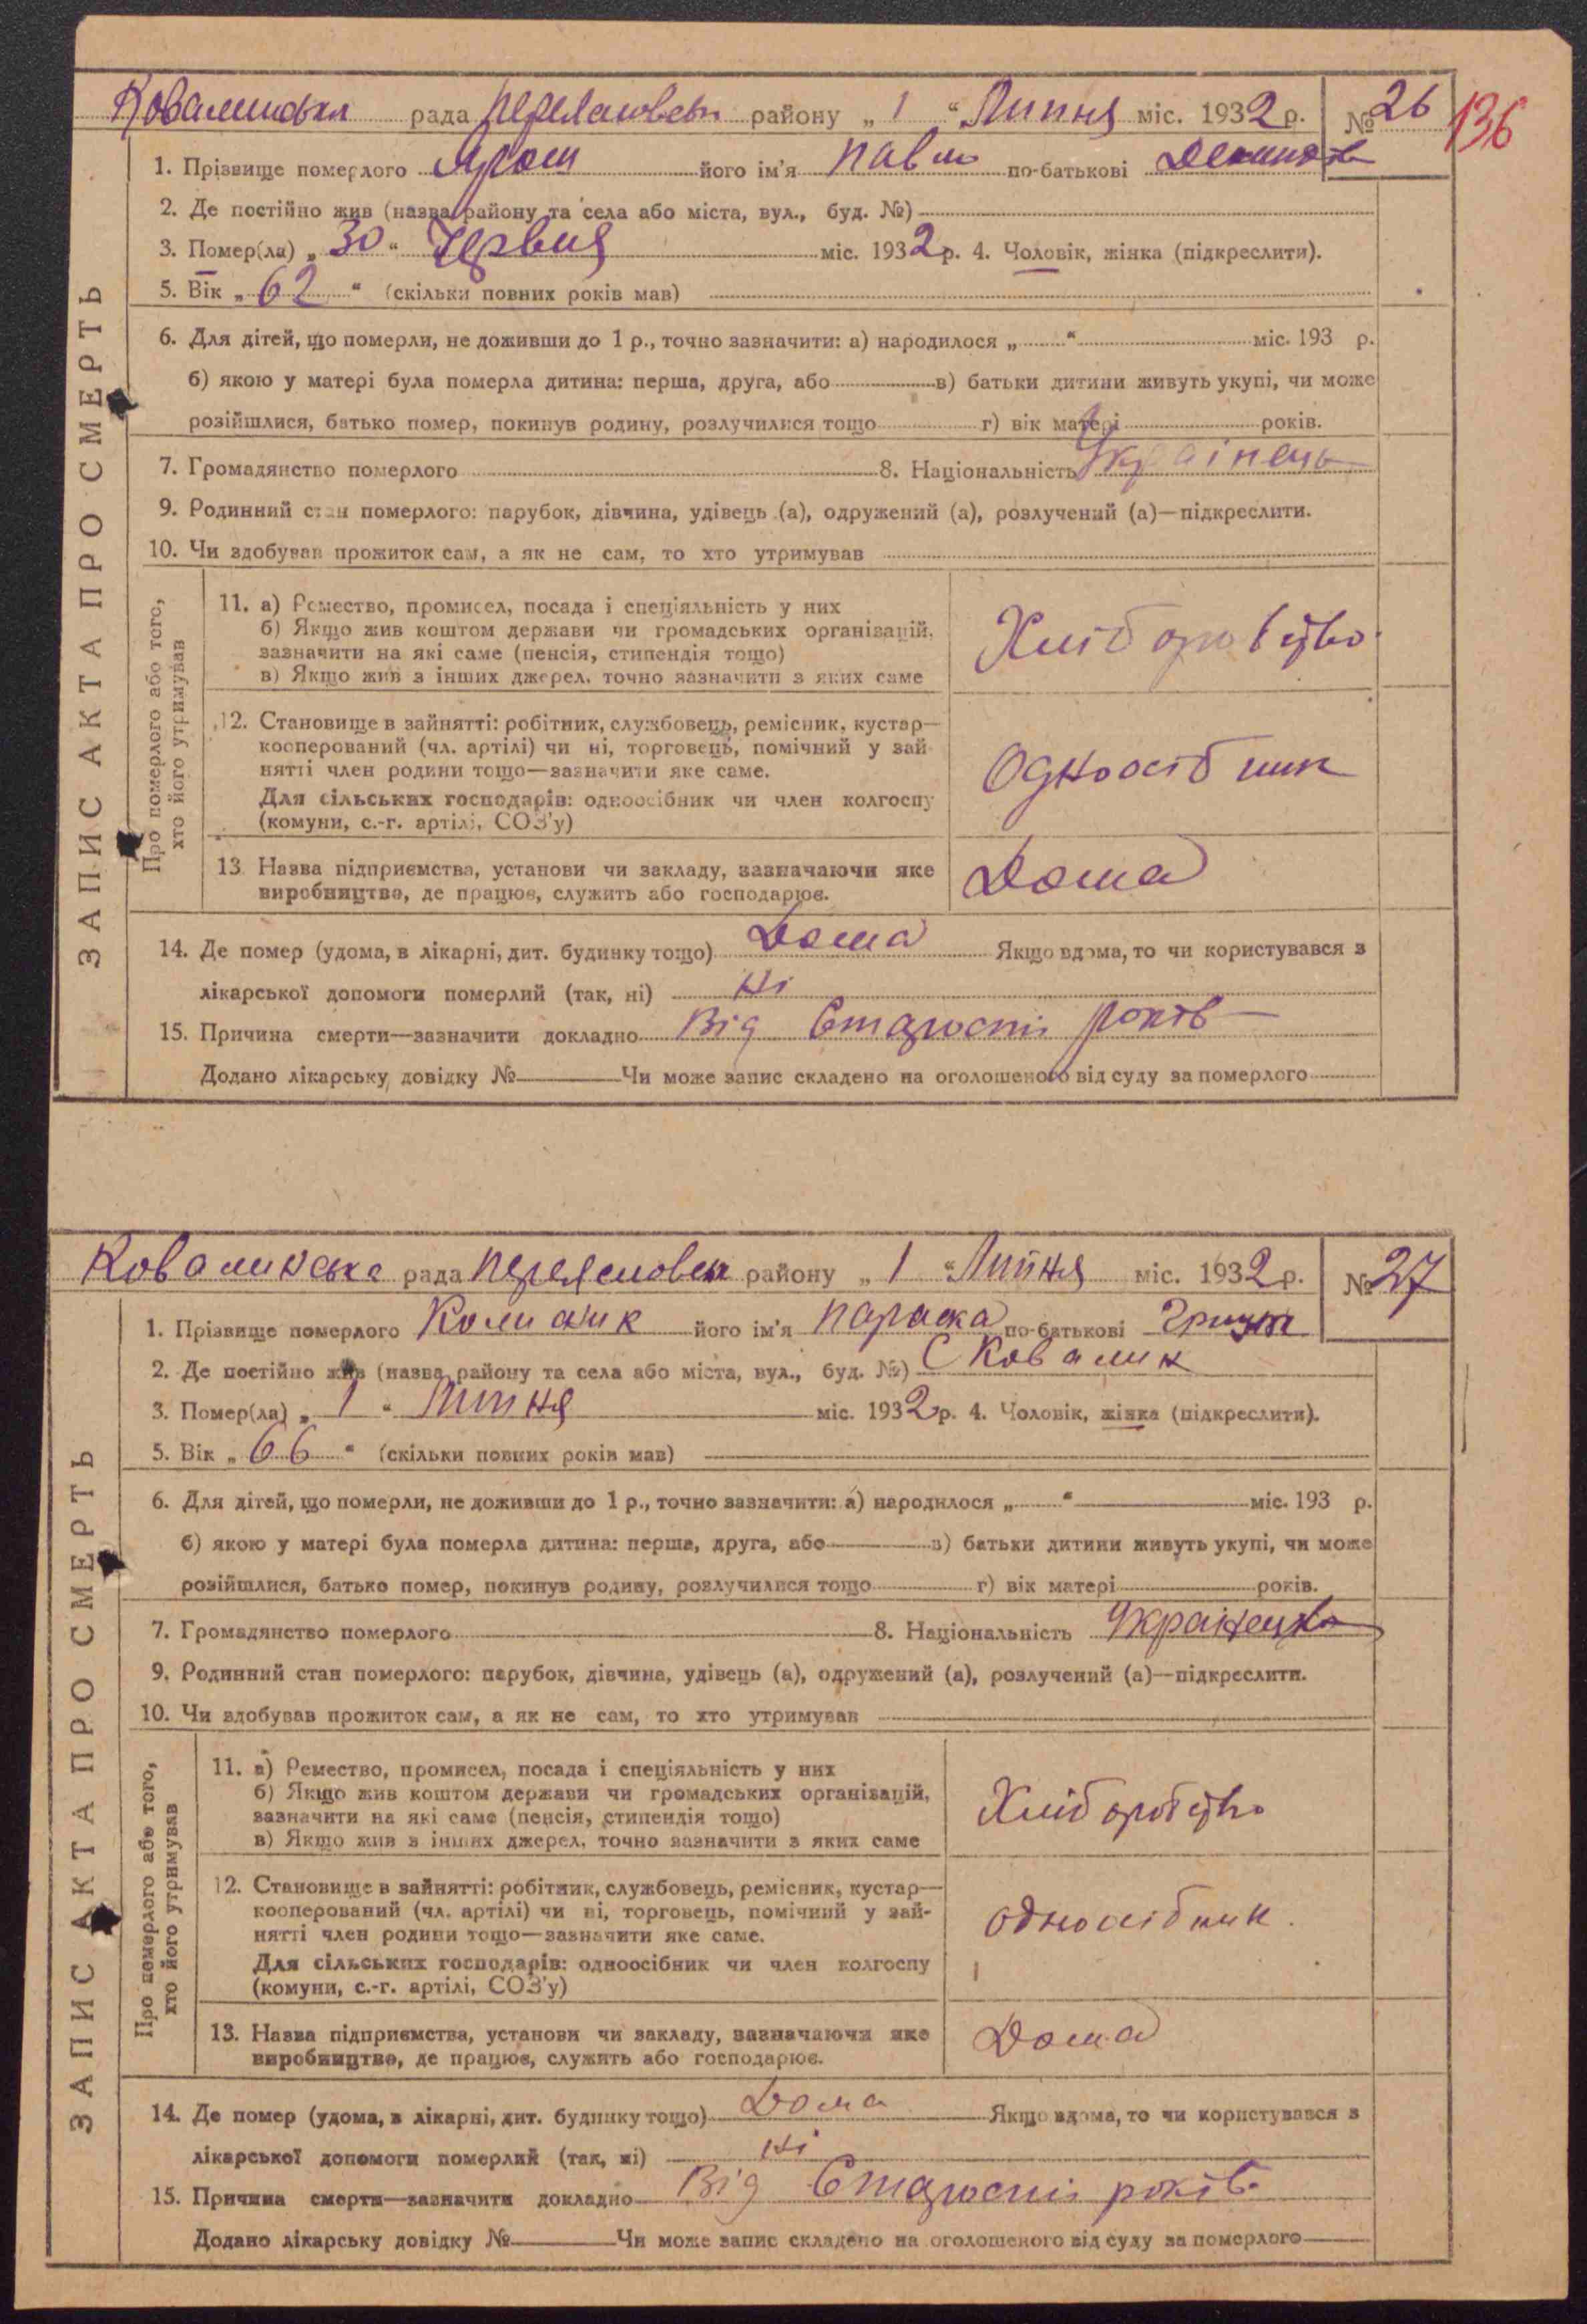 Ковалинська рада Переяславськ району „ 1 “ Липня міс. 1932 р. № 26
136
1. Прізвище померлого Ярош його ім'я Павло по-батькові
2. Де постійно жив (назва району та села або міста, вул., буд. №)
3. Помер(ла) „ 30 “ Червня міс. 1932 р. 4. Чоловік, жінка (підкреслити).
5. Вік „ 62 “ (скільки повних років мав)
6. Для дітей, що померли, не доживши до 1 р., точно зазначити: а) народилося „ “ міс. 193 р.
б) якою у матері була померла дитина: перша, друга, або в) батьки дитини живуть укупі, чи може
розійшлися, батько помер, покинув родину, розлучилися тощо г) вік матері років.
7. Громадянство померлого 8. Національність Українець
9. Родинний стан померлого: парубок, дівчина, удівець (а), одружений (а), розлучений (а)—підкреслити.
10. Чи здобував прожиток сам, а як не сам, то хто утримував
ЗАПИС АКТА ПРО СМЕРТЬ
Про померлого або того,
хто його утримував
11. а) Ремество, промисел, посада і спеціяльність у них
б) Якщо жив коштом держави чи громадських організацій,
зазначити на які саме (пенсія, стипендія тощо)
в) Якщо жив з інших джерел, точно зазначити з яких саме
Хліборобство
12. Становище в зайнятті: робітник, службовець, ремісник, кустар—
кооперований (чл. артілі) чи ні, торговець, помічний у зай-
нятті член родини тощо—зазначити яке саме.
Для сільських господарів: одноосібник чи член колгоспу
(комуни, с.-г. артілі, СОЗ'у)
Одноосібник
13. Назва підприємства, установи чи закладу, зазначаючи яке
виробництво, де працює, служить або господарює.
Дома
14. Де помер (удома, в лікарні, дит. будинку тощо) Дома Якщо вдома, то чи користувався з
лікарської допомоги померлий (так, ні) ні
15. Причина смерти—зазначити докладно Від Старости років
Додано лікарську довідку № Чи може запис складено на оголошеного від суду за померлого
Ковалинська рада Переяславськ району „ 1 “ Липня міс. 1932 р. № 27
1. Прізвище померлого його ім'я Параска по-батькові
2. Де постійно жив (назва району та села або міста, вул., буд. №) С Ковалин
3. Помер(ла) „ 1 “ Липня міс. 1932 р. 4. Чоловік, жінка (підкреслити).
5. Вік „ 66 “ (скільки повних років мав)
6. Для дітей, що померли, не доживши до 1 р., точно зазначити: а) народилося „ “ міс. 193 р.
б) якою у матері була померла дитина: перша, друга, або в) батьки дитини живуть укупі, чи може
розійшлися, батько помер, покинув родину, розлучилися тощо г) вік матері років.
7. Громадянство померлого 8. Національність
9. Родинний стан померлого: парубок, дівчина, удівець (а), одружений (а), розлучений (а)—підкреслити.
10. Чи здобував прожиток сам, а як не сам, то хто утримував
ЗАПИС АКТА ПРО СМЕРТЬ
Про померлого або того,
хто його утримував
11. а) Ремество, промисел, посада і спеціяльність у них
б) Якщо жив коштом держави чи громадських організацій,
зазначити на які саме (пенсія, стипендія тощо)
в) Якщо жив з інших джерел, точно зазначити з яких саме
Хліборобство
12. Становище в зайнятті: робітник, службовець, ремісник, кустар—
кооперований (чл. артілі) чи ні, торговець, помічний у зай-
нятті член родини тощо—зазначити яке саме.
Для сільських господарів: одноосібник чи член колгоспу
(комуни, с.-г. артілі, СОЗ'у)
одноосібник.
13. Назва підприємства, установи чи закладу, зазначаючи яке
виробництво, де працює, служить або господарює.
Дома
14. Де помер (удома, в лікарні, дит. будинку тощо) Дома Якщо вдома, то чи користувався з
лікарської допомоги померлий (так, ні) ні
15. Причина смерти—зазначити докладно Від Старости років
Додано лікарську довідку № Чи може запис складено на оголошеного від суду за померлого